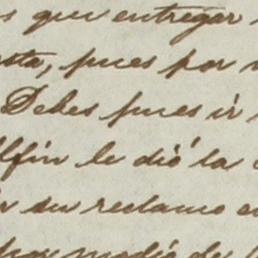 s que entregar
sta, pues por
Debes pues ir
lfin le dió la
su reclamo e
por medio de